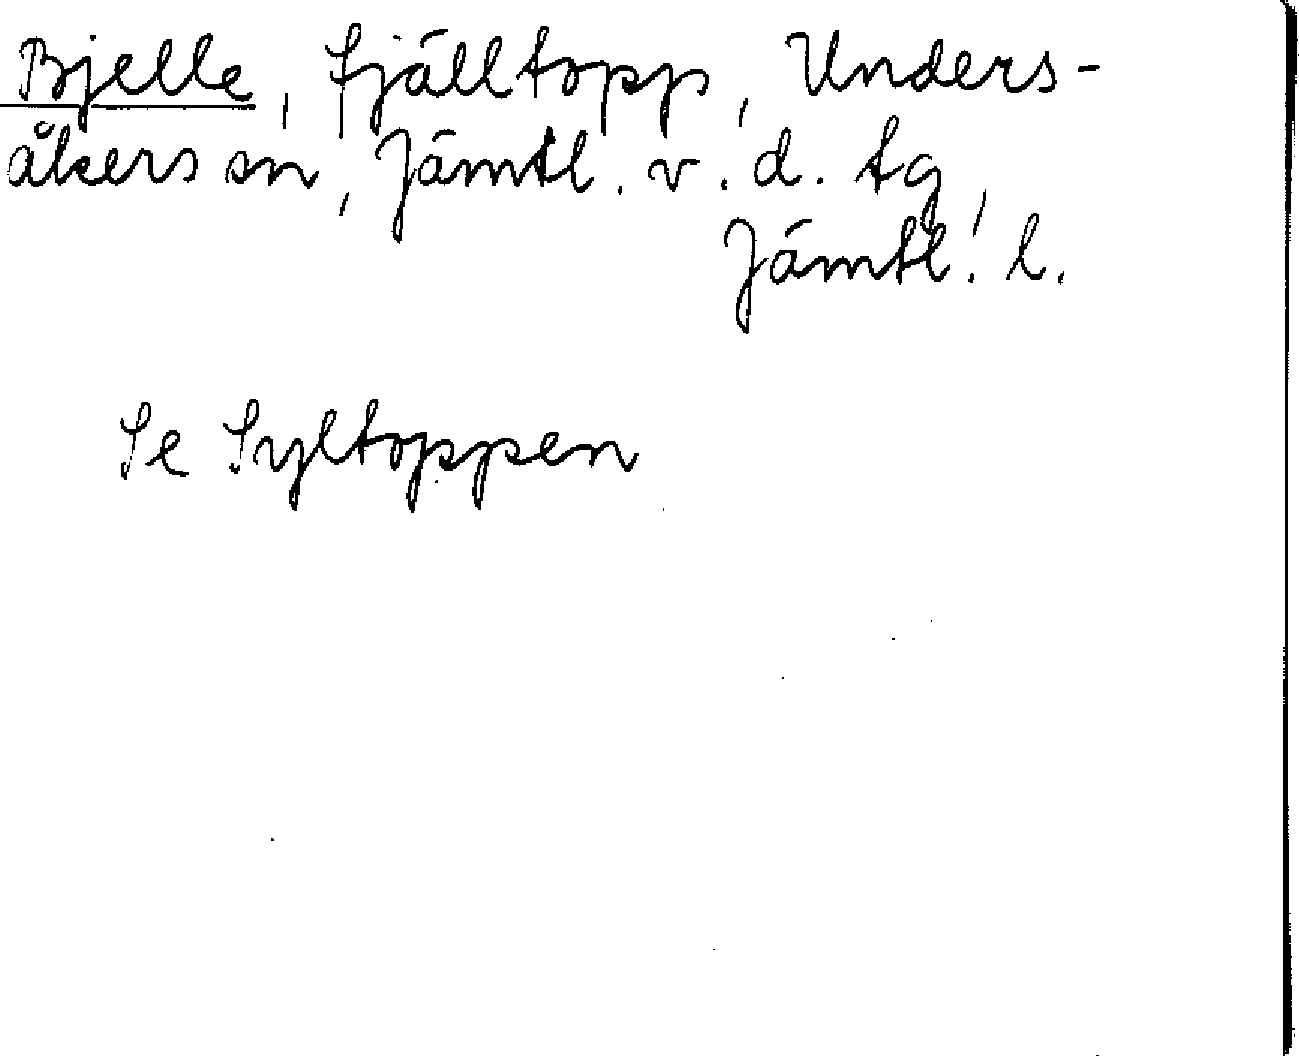 Bjelle, fjälltopp, Unders-
åkers sn, Jämtl. v. d. tg,
Jämtl. l.
Se Syltoppen